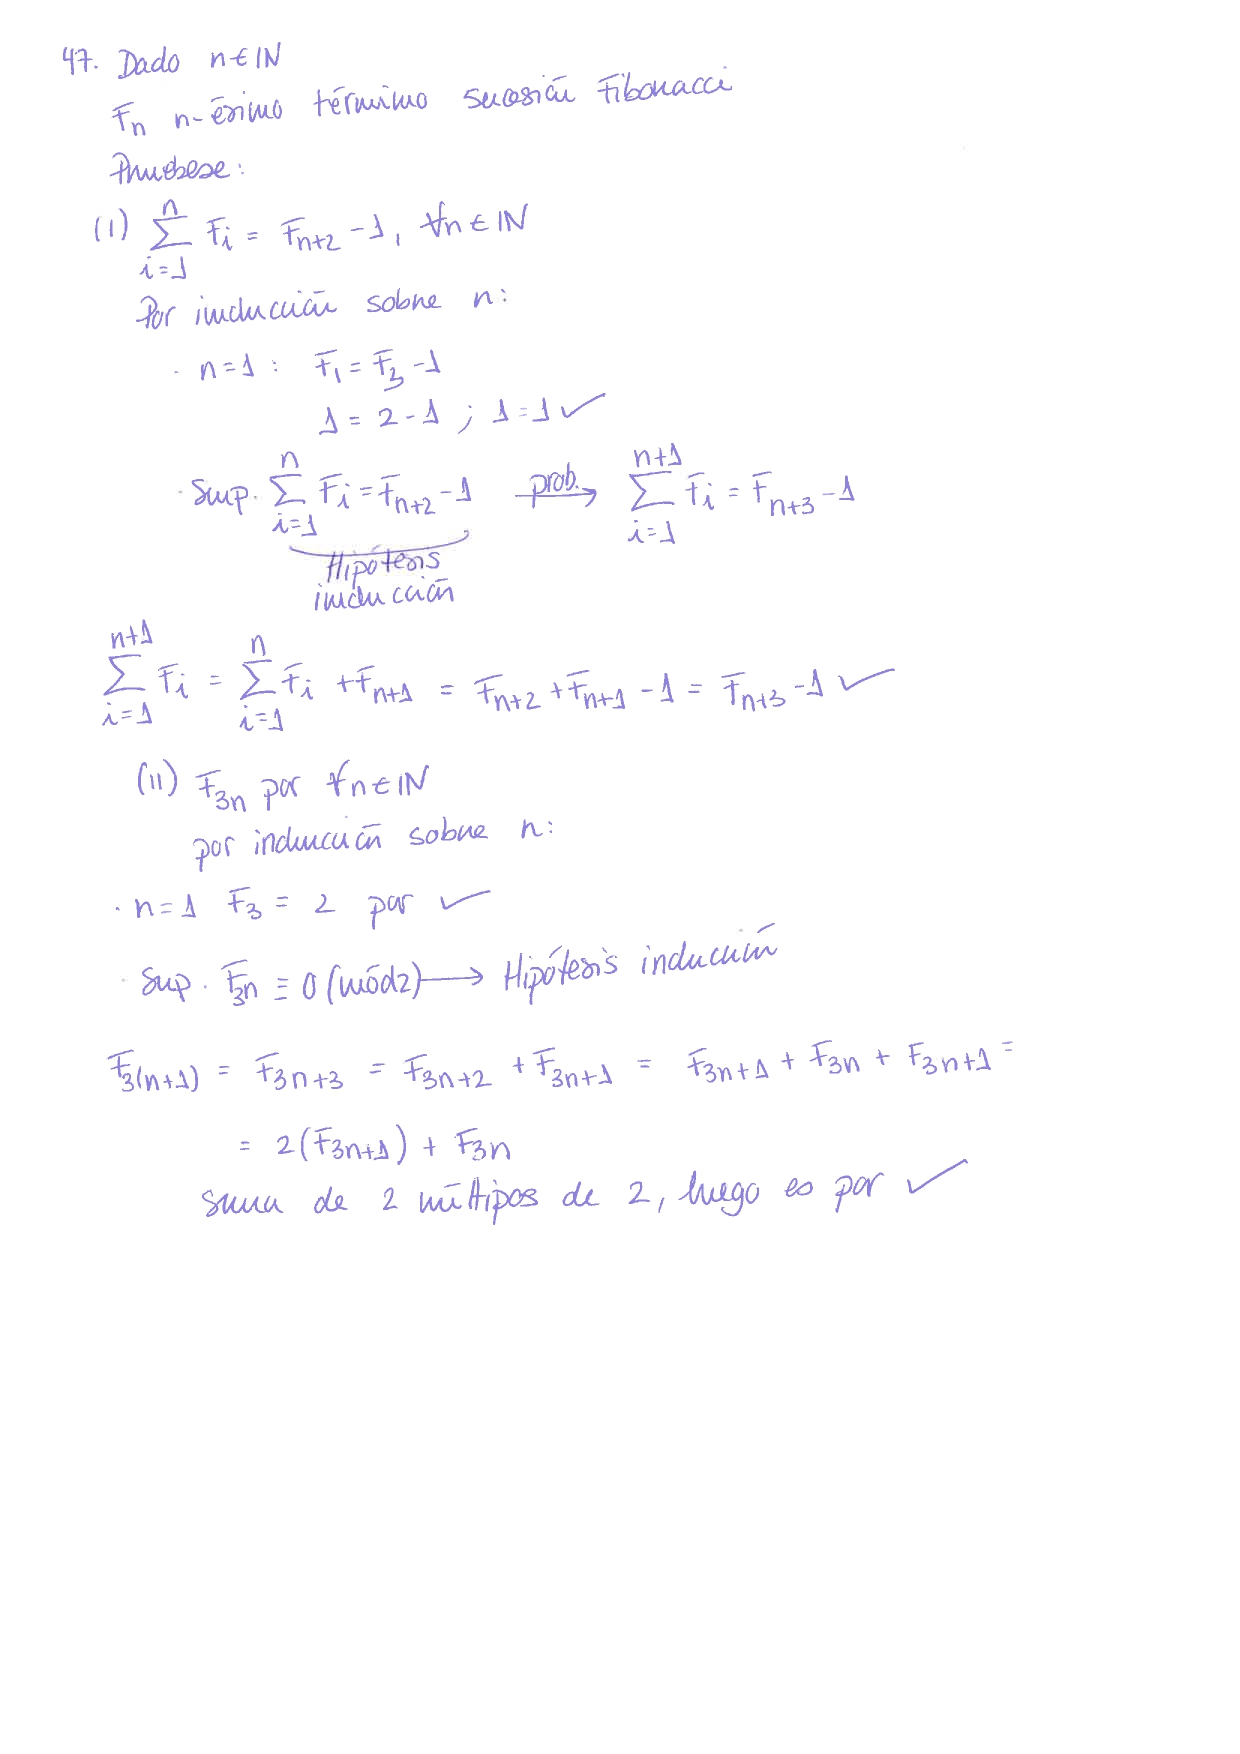 47. Dado n ∈ ℕ
Fn n-ésimo término sucesión Fibonacci
Pruébese:
(I) ∑_{i=1}^{n} F_i = F_{n+2} - 1, ∀n ∈ ℕ
Por inducción sobre n:
· n=1 : F_1 = F_3 - 1
1 = 2 - 1 ; 1 = 1 ✓
· Sup. ∑_{i=1}^{n} F_i = F_{n+2} - 1 prob.→ ∑_{i=1}^{n+1} F_i = F_{n+3} - 1
Hipótesis
inducción
∑_{i=1}^{n+1} F_i = ∑_{i=1}^{n} F_i + F_{n+1} = F_{n+2} + F_{n+1} - 1 = F_{n+3} - 1 ✓
(II) F_{3n} par ∀n ∈ ℕ
por inducción sobre n:
· n=1 F_3 = 2 par ✓
· Sup. F_{3n} ≡ 0 (mód2) → Hipótesis inducción
F_{3(n+1)} = F_{3n+3} = F_{3n+2} + F_{3n+1} = F_{3n+1} + F_{3n} + F_{3n+1} =
= 2(F_{3n+1}) + F_{3n}
suma de 2 múltipos de 2, luego es par ✓